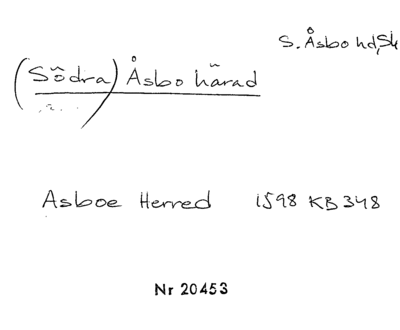 S. Åsbo hd, Sk
(Södra) Åsbo härad
Asboe Herred 1598 KB 348
Nr 20453